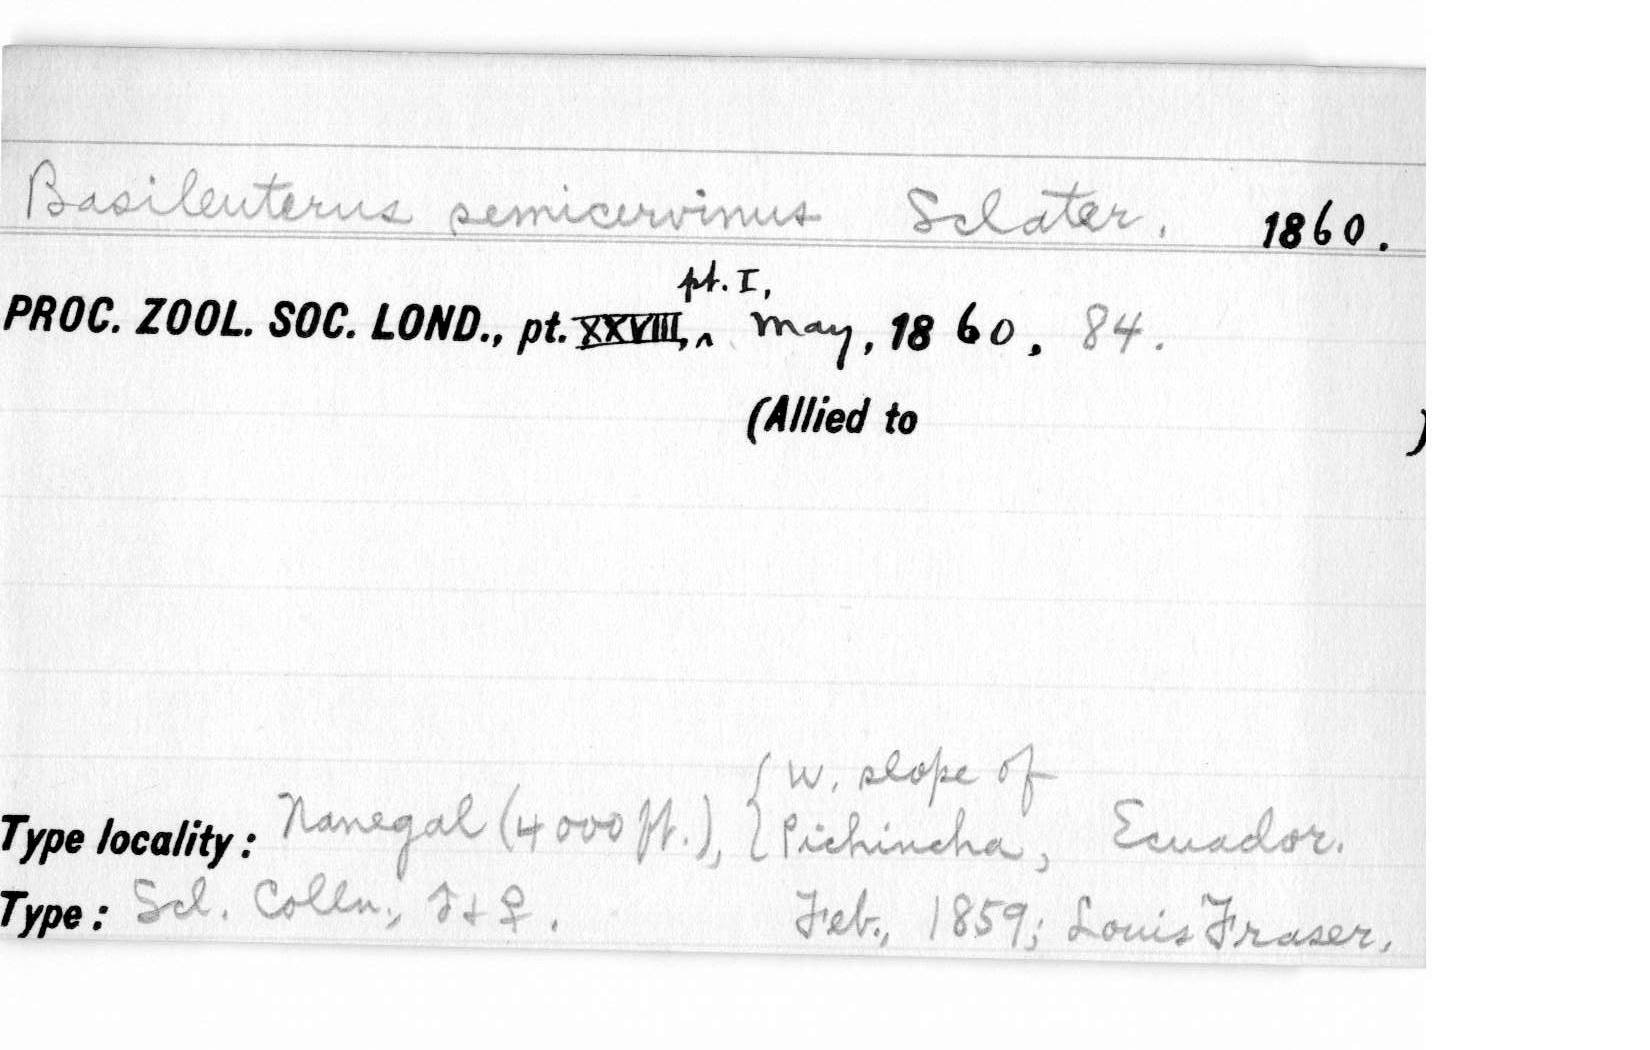 Basileuterus semicervinus Sclater. 1860.
pt. I,
PROC. ZOOL. SOC. LOND., pt. XXVIII, ^ May, 1860, 84.
(Allied to )
W. slope of
Type locality: Nanegal (4000 ft.), { Pichincha, Ecuador.
Type: Scl. Colln., ♂ + ♀. Feb., 1859; Louis Fraser.